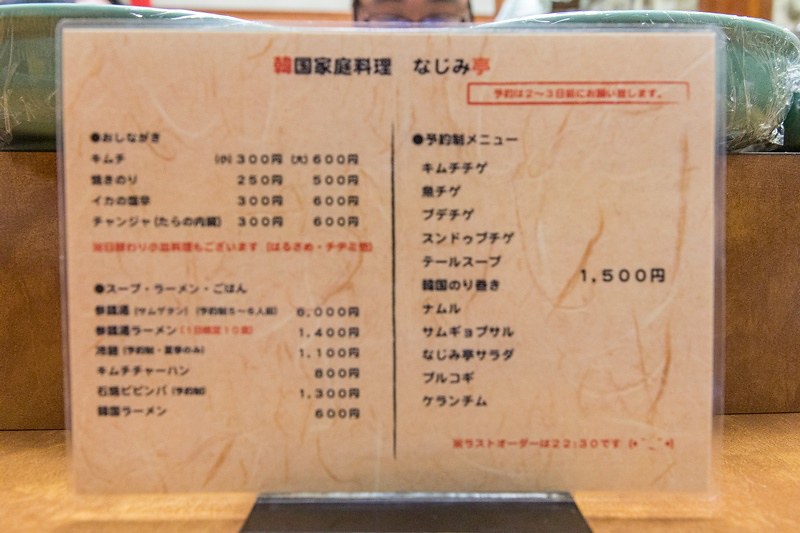 韓国家庭料理　なじみ亭
予約は2～3日前にお願い致します。
●おしながき
キムチ (小)300円 (大)600円
焼きのり 250円 500円
イカの塩辛 300円 600円
チャンジャ(たらの内臓) 300円 600円
※日替わり小皿料理もございます (はるさめ・チヂミ他)
●スープ・ラーメン・ごはん
参鶏湯(サムゲタン) (予約制5～6人前) 6,000円
参鶏湯ラーメン(1日限定10食) 1,400円
冷麺(予約制・夏季のみ) 1,100円
キムチチャーハン 800円
石焼ビビンバ(予約制) 1,300円
韓国ラーメン 600円
●予約制メニュー
キムチチゲ
魚チゲ
プデチゲ
スンドゥブチゲ
テールスープ
韓国のり巻き
ナムル
サムギョプサル
なじみ亭サラダ
プルコギ
ケランチム
1,500円
※ラストオーダーは22:30です